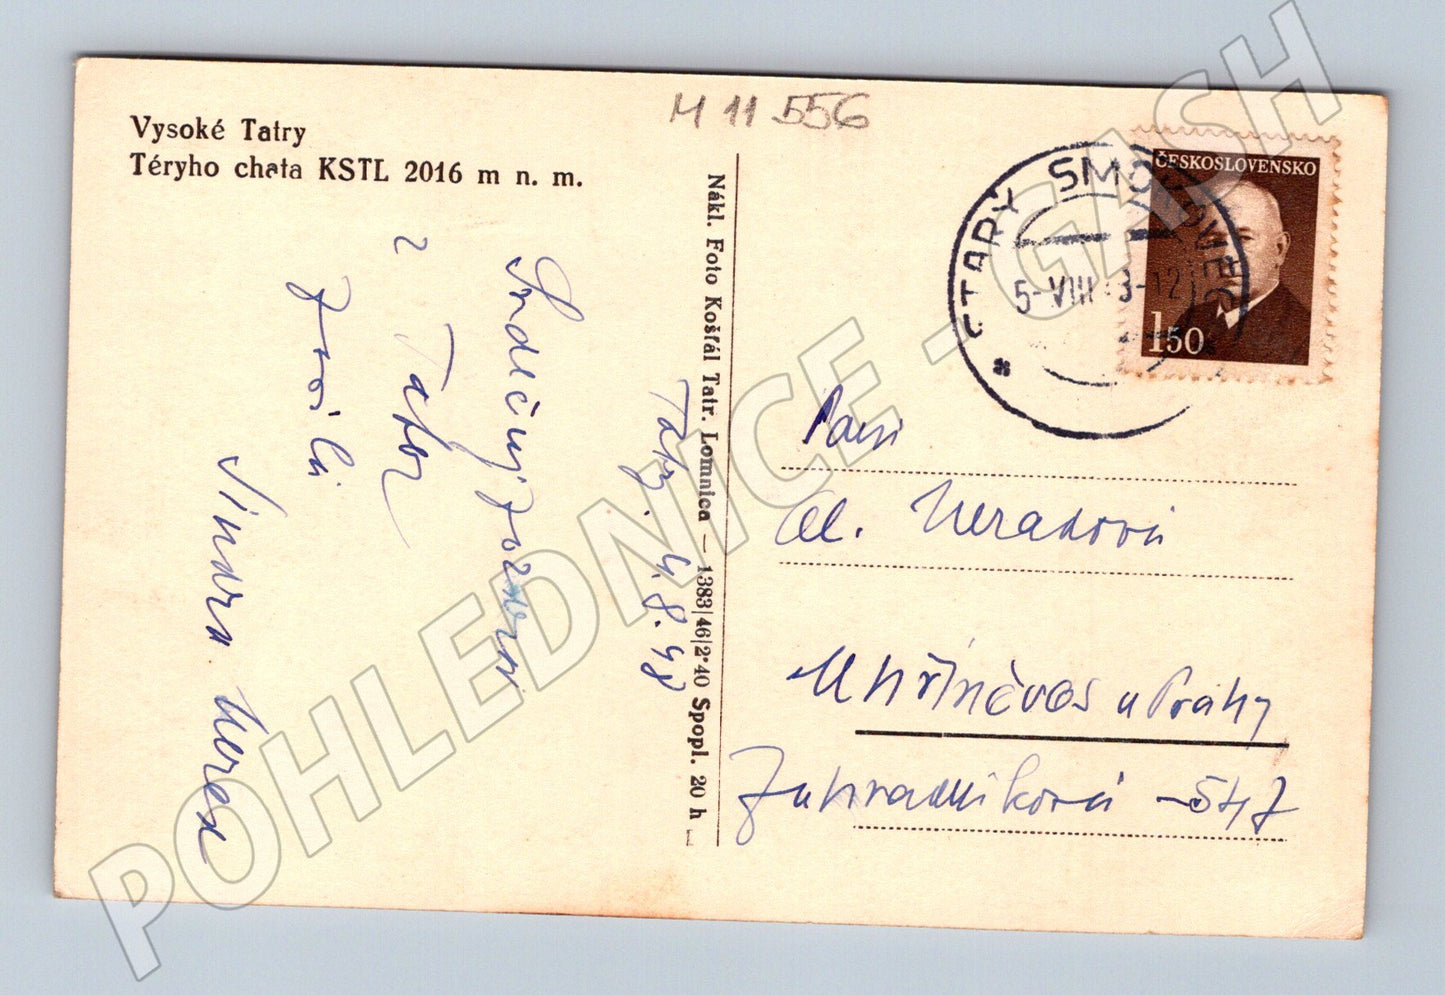 M 11 556
Vysoké Tatry
Téryho chata KSTL 2016 m n. m.
Tatry. 4.8.48
Srdečný pozdrav
z Tater
Nákl. Foto Košťál Tatr. Lomnica — 1383|46|2·40 Spopl. 20 h
STARÝ SMOKOVEC
5-VIII 48-12
ČESKOSLOVENSKO
1 50
Paní
Al. Neradová
Uhříněves u Prahy
Zahradníková - 547
POHLEDNICE - GASH